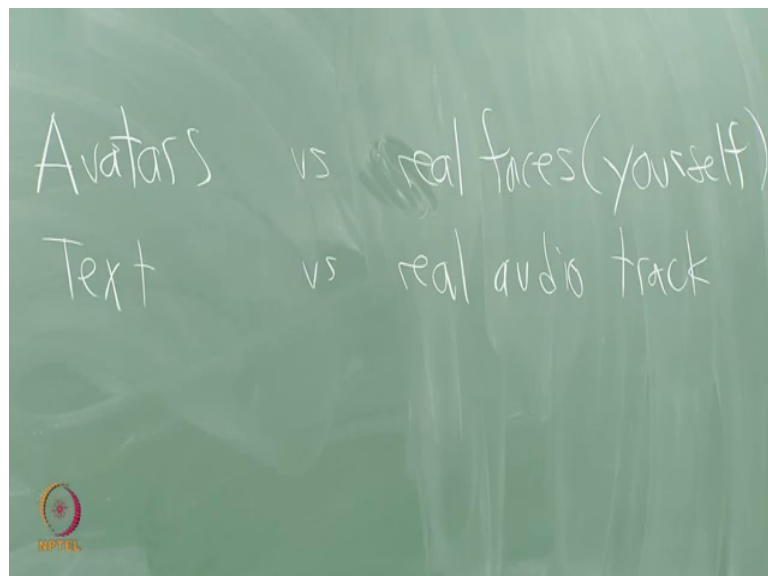 Avatars vs real faces (yourself)
Text vs real audio track
NPTEL